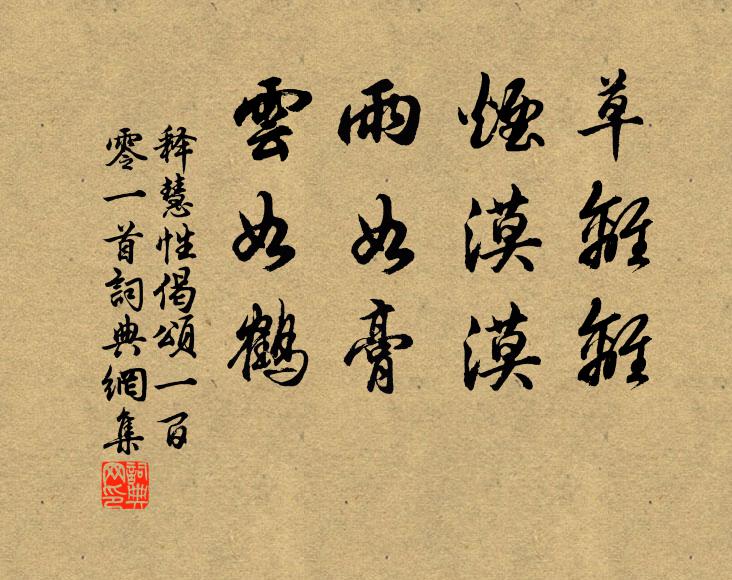 草離離
煙漠漠
雨如膏
雲如鶴
释慧性偈頌一百
零一首詞典網集
詞典网印